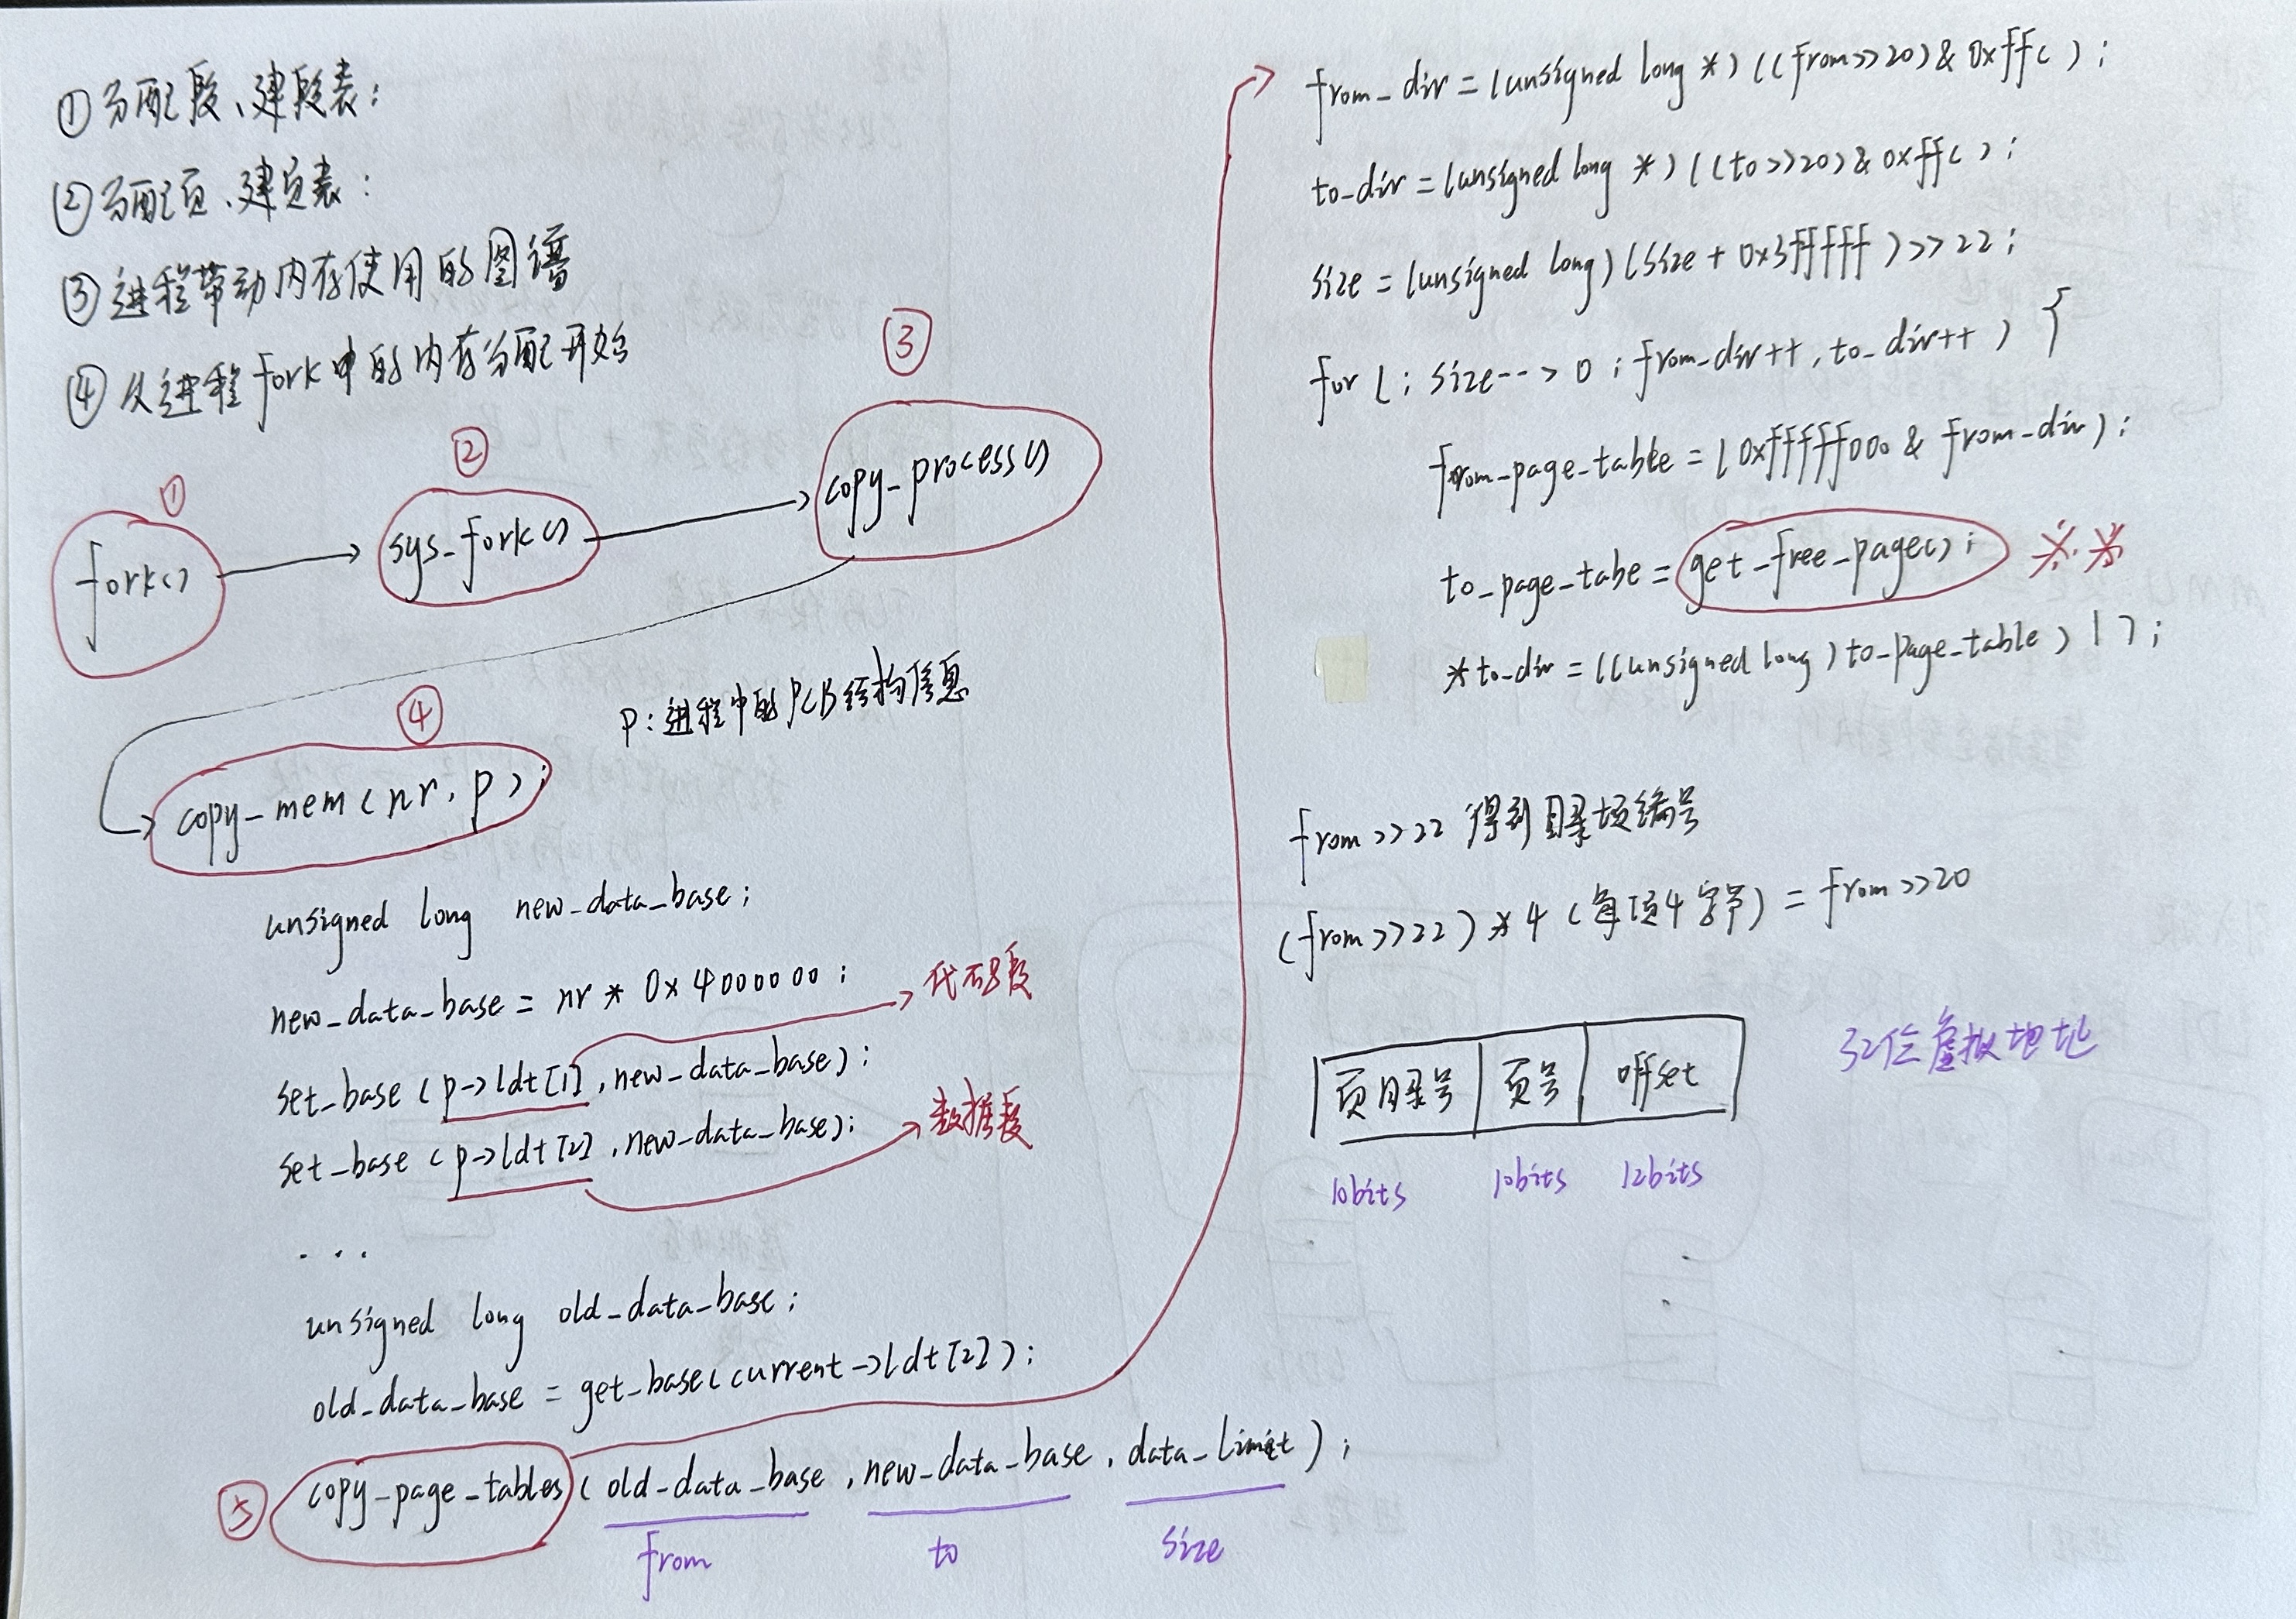 ①分配段、建段表：
②分配页、建页表：
③进程带动内存使用的图谱
④从进程fork中的内存分配开始
①
②
③
fork()
sys_fork()
copy_process()
④
p：进程中的PCB结构信息
copy_mem(nr, p);
unsigned long new_data_base;
new_data_base = nr * 0x4000000;
代码段
set_base(p->ldt[1], new_data_base);
数据段
set_base(p->ldt[2], new_data_base);
...
unsigned long old_data_base;
old_data_base = get_base(current->ldt[2]);
⑤
copy_page_tables(old_data_base, new_data_base, data_limit);
from
to
size
from_dir = (unsigned long *)((from>>20)&0xffc);
to_dir = (unsigned long *)((to>>20)&0xffc);
size = (unsigned long)(size + 0x3fffff)>>22;
for(; size-->0; from_dir++, to_dir++) {
from_page_table = (0xfffff000 & from_dir);
to_page_tabe = get_free_page(); ※※
*to_dir = ((unsigned long)to_page_table)|7;
from>>22 得到目录项编号
(from>>22)*4(每项4字节) = from>>20
页目录号 页号 offset
32位虚拟地址
10bits 10bits 12bits